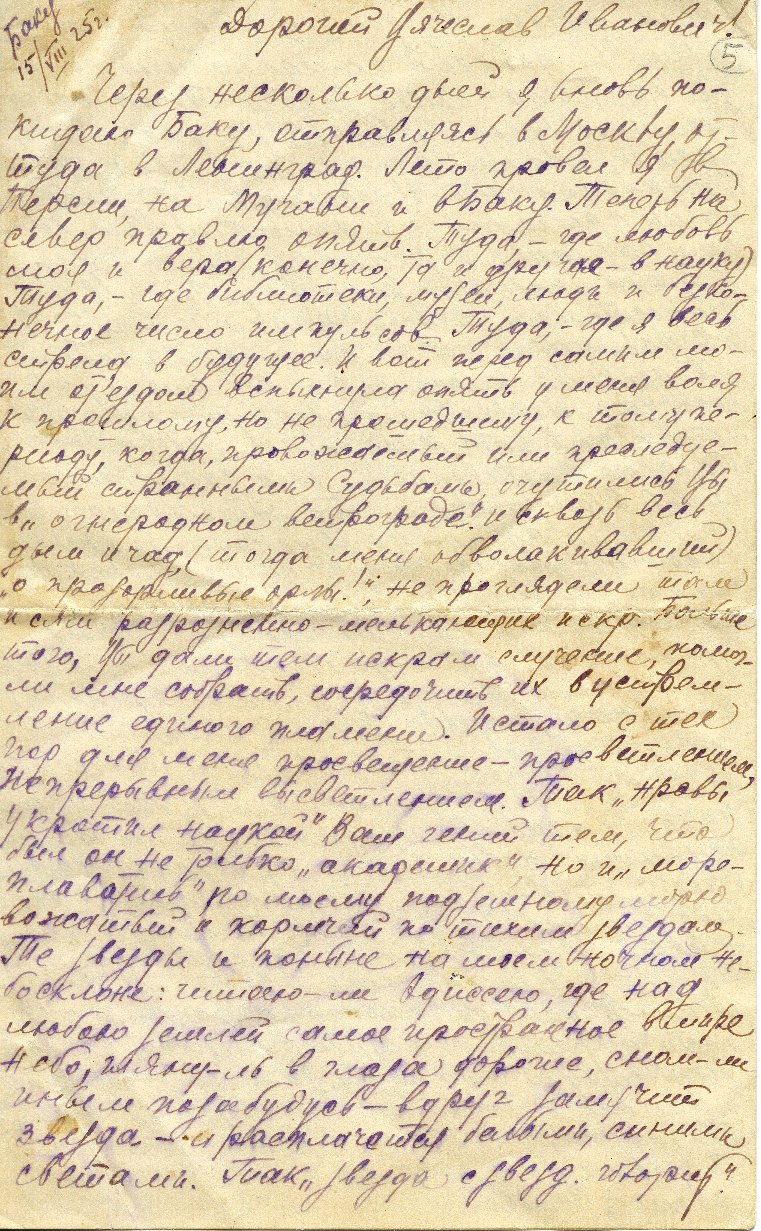 Баку
15/VIII 25г.
Дорогой Вячеслав Иванович!
5
Через несколько дней я вновь по-
кидаю Баку, отправляясь в Москву, от-
туда в Ленинград. Лето провел я в
Персии, на Мугани и в Баку. Теперь на
север правлю опять. Туда, – где любовь
моя и вера (конечно, та и другая – в науку)
Туда, – где библиотеки, музеи, люди и беско-
нечное число импульсов. Туда, – где я весь
стрела в будущее. И вот перед самым мо-
им отъездом вспыхнула опять у меня воля
к прошлому, но не прошедшему, к тому пе-
риоду, когда, провожатый или преследуе-
мый странными Судьбами, очутились Вы
в „огнеродном ветрограде“ и сквозь весь
дым и чад, (тогда меня обволакивавший)
„о прозорливые орлы!“, не проглядели там
и сям разрозненно-мелькающие искр. Больше
того, Вы дали тем искрам случение, помог-
ли мне собрать, сосредочить их в устрем-
ление единого пламени. И стало с тех
пор для меня просвещение – просветлением,
непрерывным высветлением. Так „нравы
укротил наукой“ Ваш гений тем, что
был он не только „академик“, но и „море-
плаватель“ по моему подземному морю
вожатый и кормчий по тихим звездам.
Те звезды и поныне на моем ночном не-
босклоне: читаю-ли Одиссею, где над
любою землей самое пространное в мире
небо, гляну-ль в глаза дороже, сном-ли
иным позабудусь – вдруг замучит
звезда – и расплачется белыми, синими
светами. Так „звезда с звезд. говорит“.